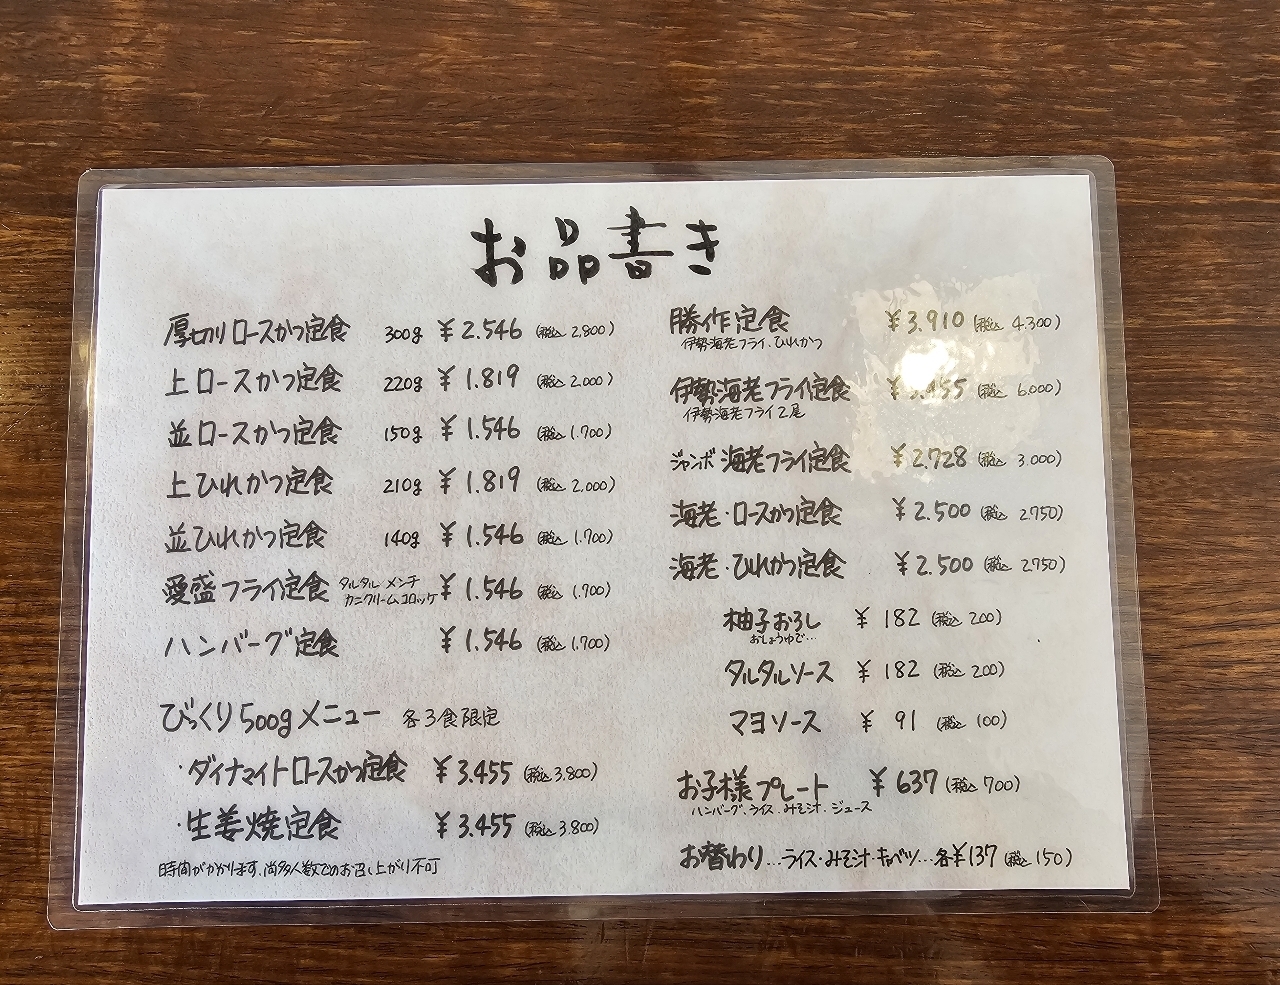 お品書き
厚切りロースかつ定食 300g ¥2.546 (税込 2.800)
上ロースかつ定食 220g ¥1.819 (税込 2.000)
並ロースかつ定食 150g ¥1.546 (税込 1.700)
上ひれかつ定食 210g ¥1.819 (税込 2.000)
並ひれかつ定食 140g ¥1.546 (税込 1.700)
愛盛フライ定食 タルタル メンチ カニクリームコロッケ ¥1.546 (税込 1.700)
ハンバーグ定食 ¥1.546 (税込 1.700)
びっくり500gメニュー 各3食限定
・ダイナマイトロースかつ定食 ¥3.455 (税込 3.800)
・生姜焼定食 ¥3.455 (税込 3.800)
時間がかかります.尚多人数でのお召し上がり不可
勝作定食 ¥3.910 (税込 4.300)
伊勢海老フライ、ひれかつ
伊勢海老フライ定食 (税込 6.000)
伊勢海老フライ2尾
ジャンボ海老フライ定食 ¥2.728 (税込 3.000)
海老・ロースかつ定食 ¥2.500 (税込 2.750)
海老・ひれかつ定食 ¥2.500 (税込 2.750)
柚子おろし ¥182 (税込 200)
おしょうゆで…
タルタルソース ¥182 (税込 200)
マヨソース ¥91 (税込 100)
お子様プレート ¥637 (税込 700)
ハンバーグ、ライス、みそ汁、ジュース
お替わり…ライス・みそ汁・キャベツ…各¥137 (税込 150)